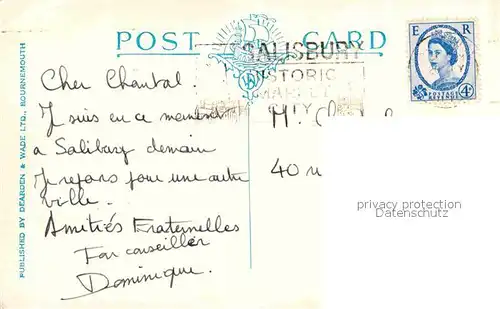 POST CARD
SALISBURY
HISTORIC
MARKET
CITY
E R
POSTAGE
REVENUE
4D
Cher Chantal.
Je suis en ce moment
a Salibury demain
Je repars pour une autre
ville.
Amitiés Fraternelles
Ton conseiller
Dominique.
M.
40 r
privacy protection
Datenschutz
PUBLISHED BY DEARDEN & WADE LTD., BOURNEMOUTH